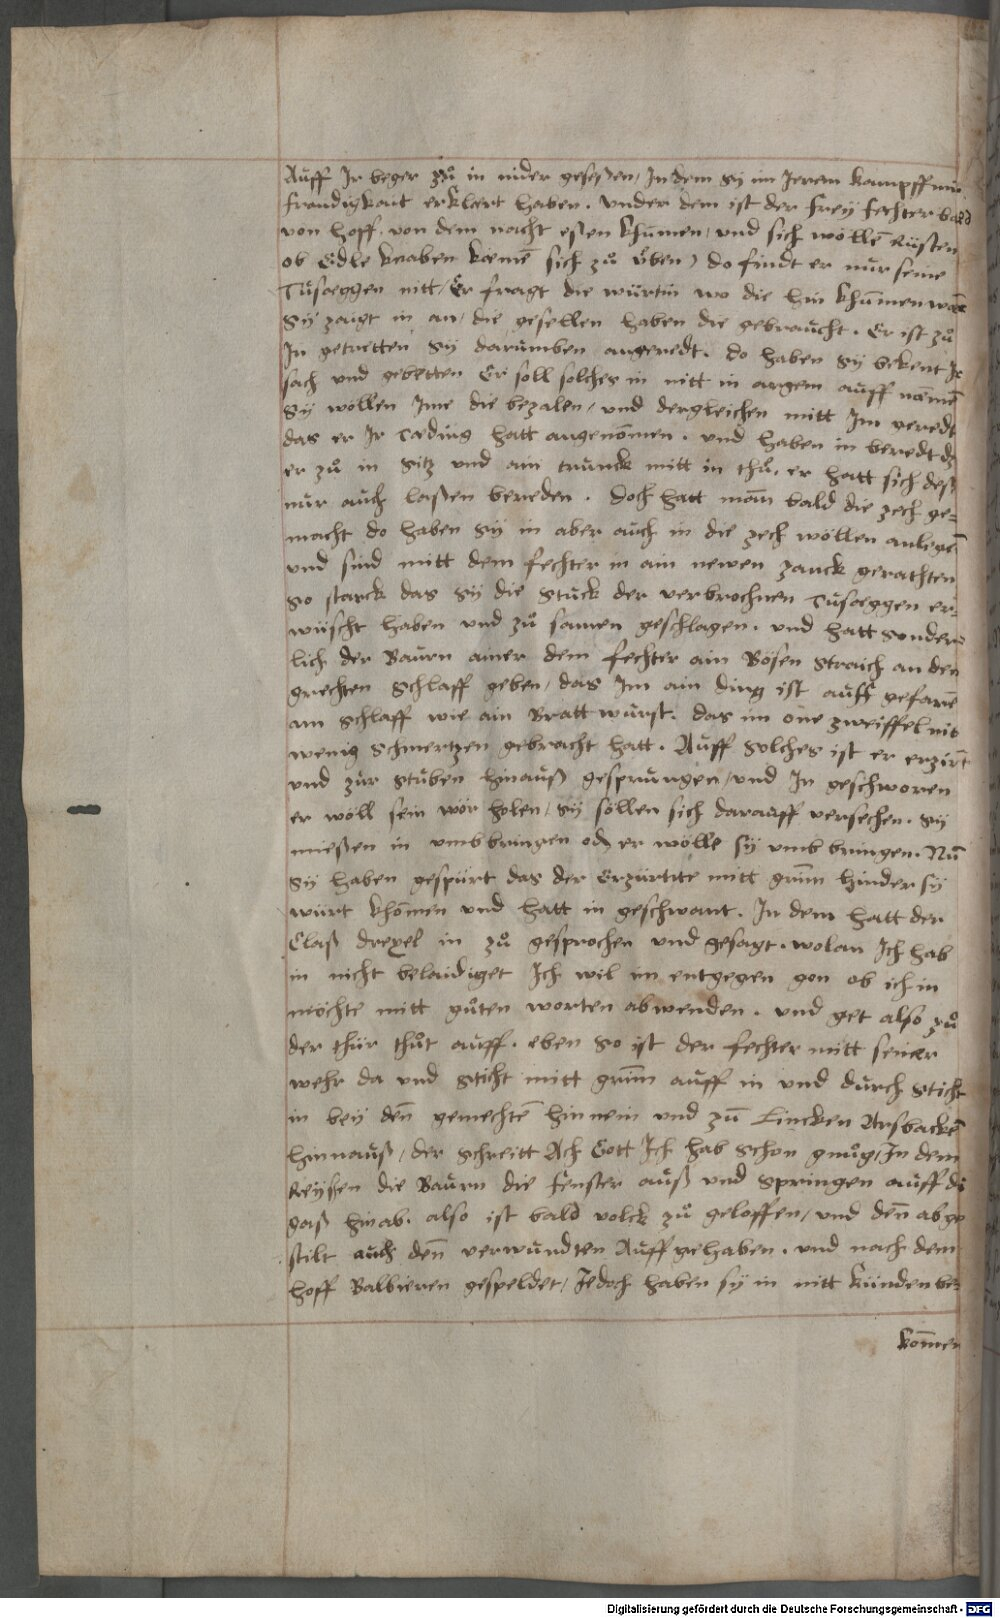 Auff Ir beger zuͦ in nider geseßen, In dem sy im Ieren kampff mir
fraudigkait erklert haben. under dem ist der frey fechter bald
von hoff, von dem nacht eßen khumen, und sich wöllē Rüsten
ob Edle knaben kemē sich zuͦ üben, do findt er nur seine
Tusaeggen nitt, Er fragt die würtin wo die hin khumen
Sy zaigt in an, die gesellen haben die gebraucht. Er ist zuͦ
In getretten sy darumben angeredt. do haben sy bekent Ir
sach und gebetten Er soll solches in nitt in argem auff namē
Sy wöllen Ime die bezalen, und dergleichen mitt Im geredt
das er Ir taeding hatt angenomen. und haben in beredt dz
er zuͦ in sitz und ain trunck mitt in thuͦ. er hatt sich deß
nur auch laßen bereden. doch hatt man bald die zech ge=
macht do haben sy in aber auch in die zech wöllen anlegē
und sind mitt dem fechter in ain newen zanck gerathten
so starck das sy die stuck der verbrochnen Tusaeggen er=
wüscht haben und zuͦ samen geschlagen. und hatt sonder=
lich der Baurn ainer dem fechter ain Bösen straich an den
grechten schlaff geben, das Im ain ding ist auff gefarē
am schlaff wie ain Brattwurst. das im one zweiffel nit
wenig schmertzen gebracht hatt. Auff solches ist er erzirt
und zur stuben hinauß gesprungen, und In geschworen
er wöll sein wör holen, sy söllen sich darauff versechen. sy
mießen in umbbringen od er wölle sy umb bringen. Nū
sy haben gespürt das der Erzürtte mitt grim hinder sy
würt khomen und hatt in geschwant. In dem hatt der
Claß drexel in zuͦ gesprochen und gesagt. wolan Ich hab
in nicht belaidiget Ich wil im entgegen gon ob ich in
möchte mitt guͦten worten abwenden. und get also zuͦ
der thür thuͦt auff. eben so ist der fechter mitt seiner
wehr da und sticht mitt grim auff in und durch sticht
in bey den gemechtē hinnein und zū Lincken Arsbackē
hinnauß, der schreitt Ach Gott Ich hab schon gnuͦg, In dem
Reyßen die Baurn die fenster auß und springen auff di
gaß hinab. also ist bald volck zuͦ geloffen, und den abge
stilt auch den verwundten Auff gehaben. und nach dem
hoff Balbieren gespeldet, Iedoch haben sy in nitt künden be=
komen
Digitalisierung gefördert durch die Deutsche Forschungsgemeinschaft - DFG